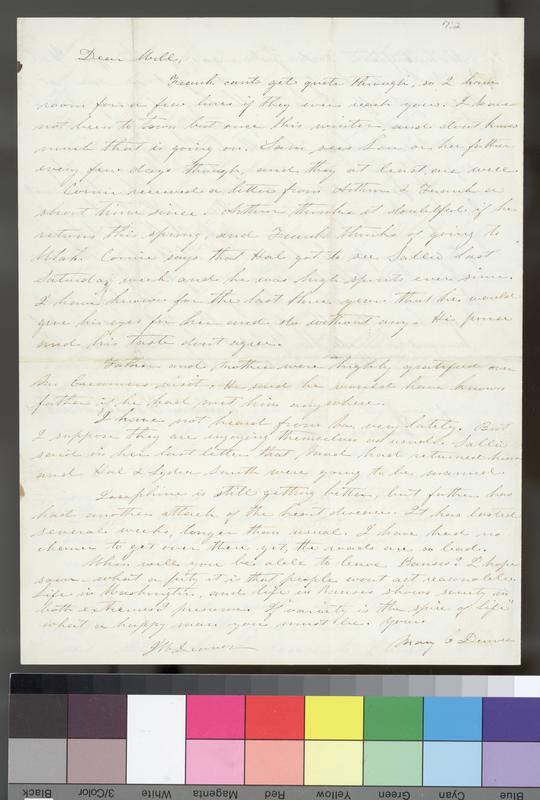 72
Dear Will,
Frank cant get quite through, so I have
room for a few lines if they ever reach you. I have
not been to town but once this winter, and dont know
much that is going on. Sam sees Lou or her father
every few days though, and they at least, are well.
received a letter from Arthur & Frank a
short time since. Arthur thinks it doubtful if he
returns this spring, and Frank thinks of going to
Utah. says that Hal got to see Sallie last
Saturday week and he was high spirits ever since.
I have known for the last three years that he would
give his eyes for her and do without any. His purse
and his taste dont agree.
Father and mother were highly gratified over
Mr. visit. He said he would have known
father if he had met him anywhere.
I have not heard from very lately. But
I suppose they are enjoying themselves as usual. Sallie
said in her last letter that had returned home
and Hal & Lydia Smith were going to be married.
Josephine is still getting better, but father has
had another attack of the heart disease. It has lasted
several weeks, longer than usual. I have had no
chance to get over there yet, the roads are so bad.
When will you be able to leave Kansas? I hope
soon. what a pity it is that people wont act reasonable.
Life in Washington, and life in Kansas shows society in
both extremes I presume. If variety is the spice of life
what a happy man you must be. Yours
JW Denver Mary C Denver
Black
3/Color
White
Magenta
Red
Yellow
Green
Cyan
Blue